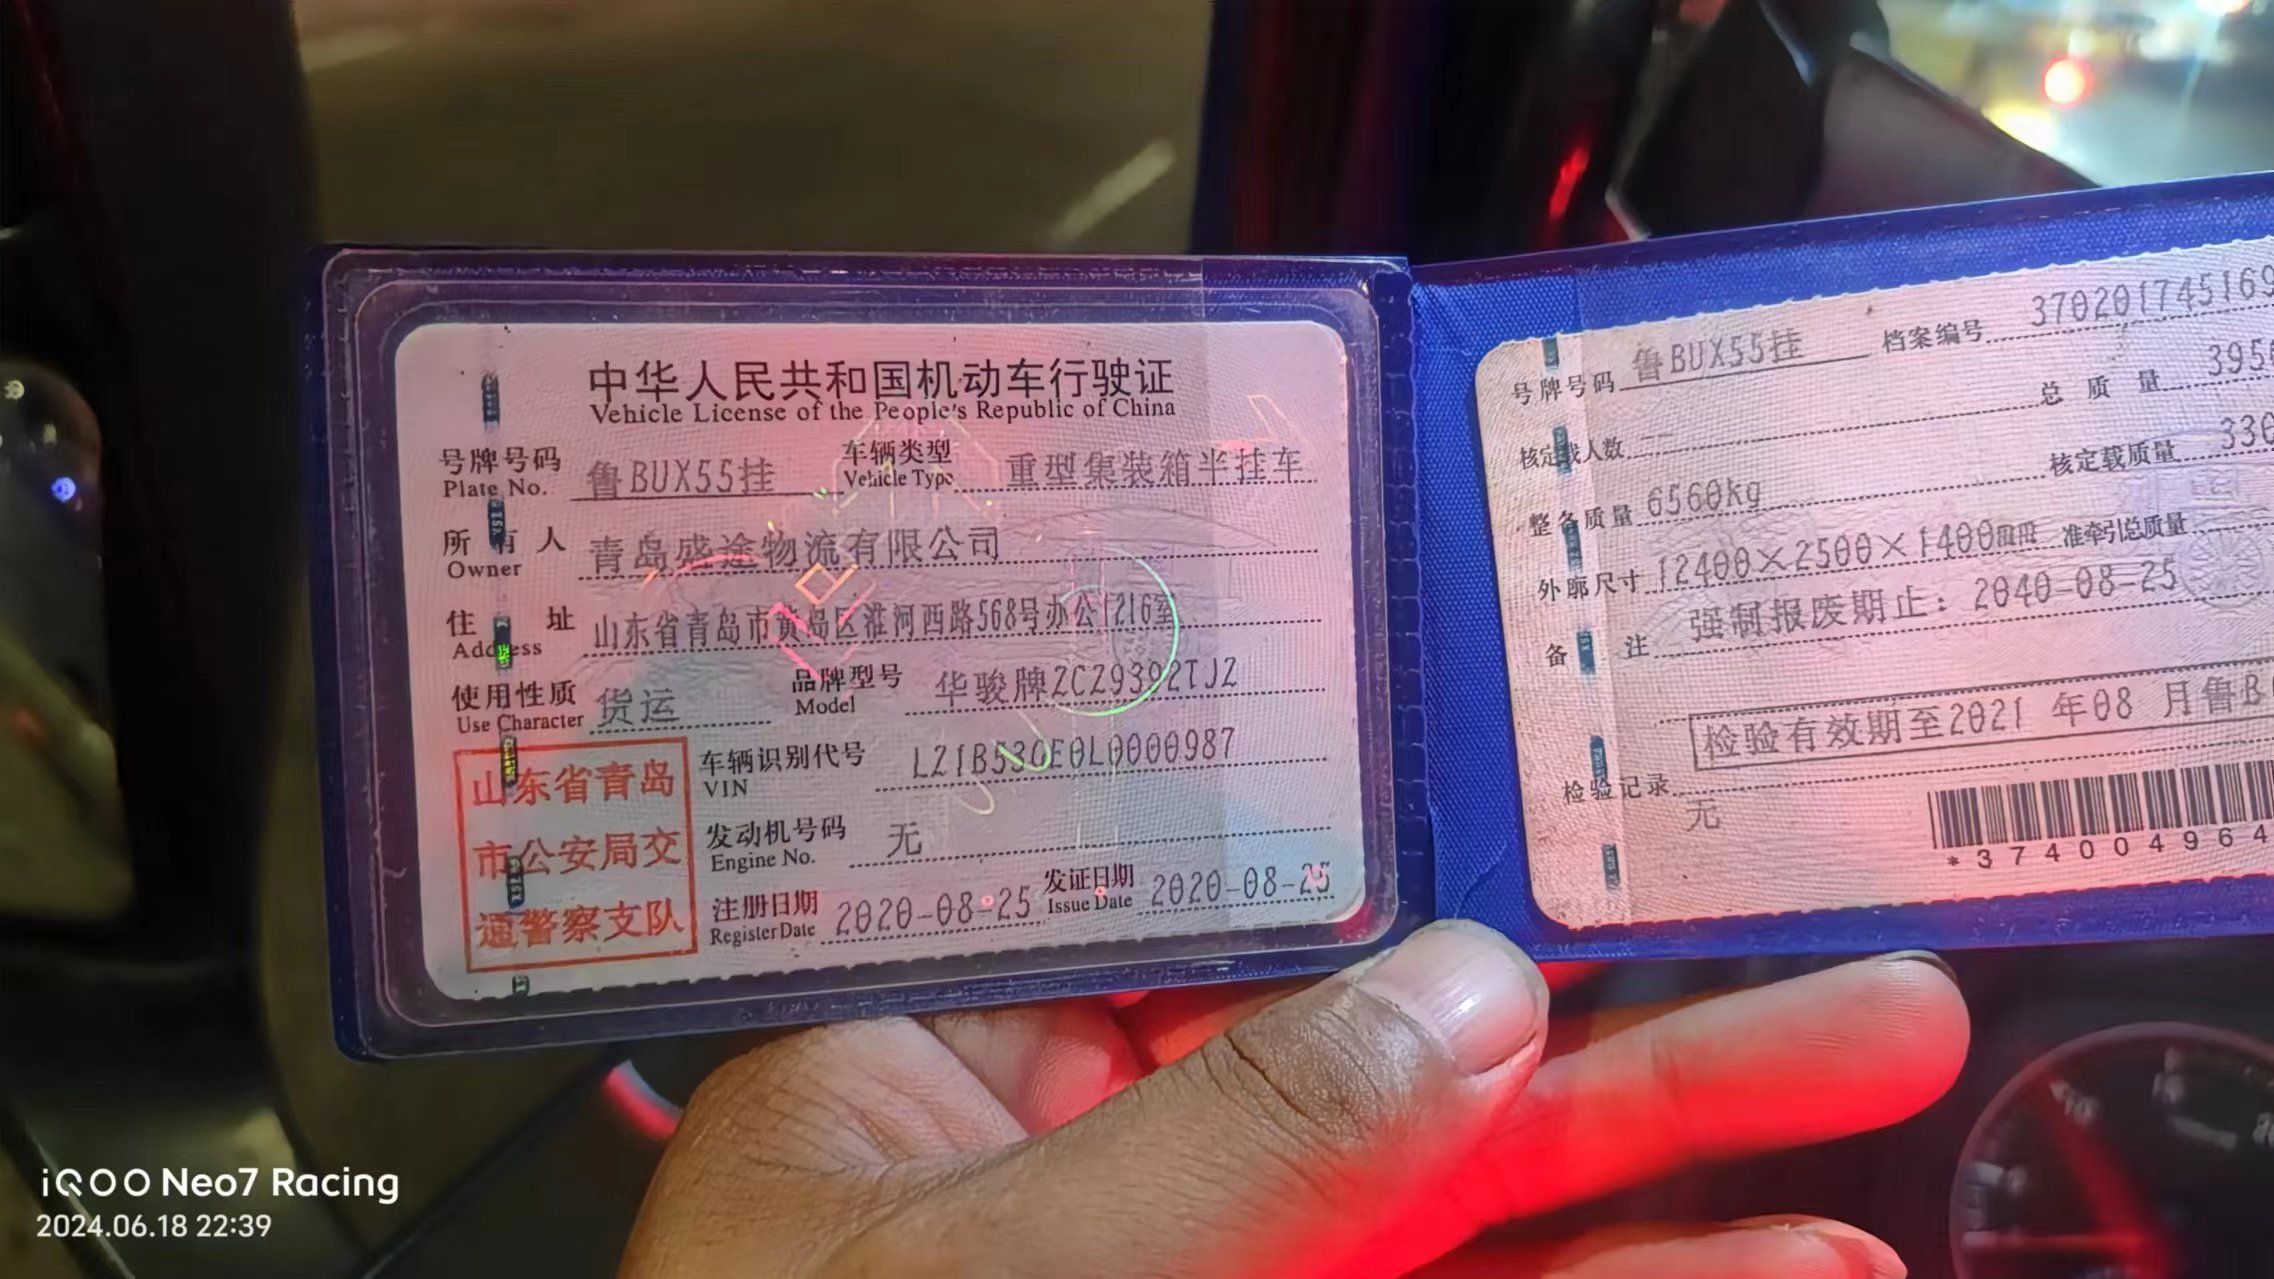 中华人民共和国机动车行驶证
Vehicle License of the People's Republic of China
号牌号码 鲁BUX55挂 车辆类型 重型集装箱半挂车
Plate No. Vehicle Type
所有人 青岛盛途物流有限公司
Owner
住址 山东省青岛市黄岛区淮河西路568号办公1216室
Address
使用性质 货运 品牌型号 华骏牌ZCZ9392TJZ
Use Character Model
山东省青岛
市公安局交
通警察支队
车辆识别代号 L21B53CE0L0000987
VIN
发动机号码 无
Engine No.
注册日期 2020-08-25 发证日期 2020-08-25
Register Date Issue Date
号牌号码 鲁BUX55挂 档案编号 370201745169
核定载人数 -- 总质量 395
整备质量 6560kg 核定载质量 330
外廓尺寸 12400×2500×1400mm 准牵引总质量
备注 强制报废期止：2040-08-25
检验有效期至2021年08月鲁B
检验记录
无
*374004964
iQOO Neo7 Racing
2024.06.18 22:39